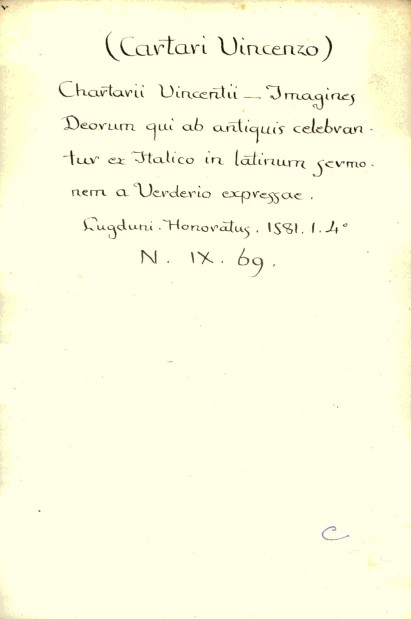 (Cartari Vincenzo)
Chartarii Vincentii — Imagines
Deorum qui ab antiquis celebran-
tur ex Italico in latinum sermo-
nem a Verderio expressae.
Lugduni. Honoratus. 1581. 1. 4°
N. IX. 69.
C